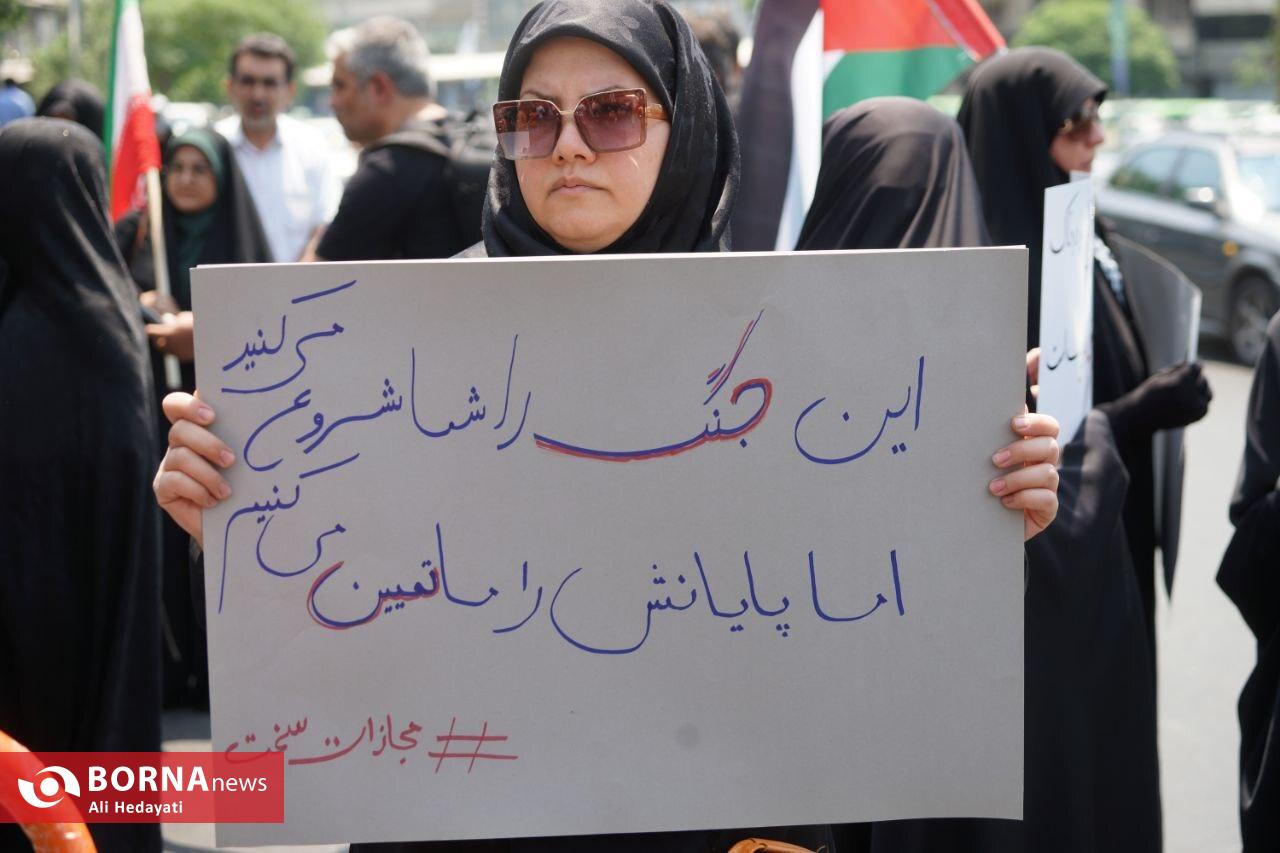 این جنگ را شما شروع می‌کنید
اما پایانش را ما تعیین می‌کنیم
# مجازات سخت
BORNA news
Ali Hedayati